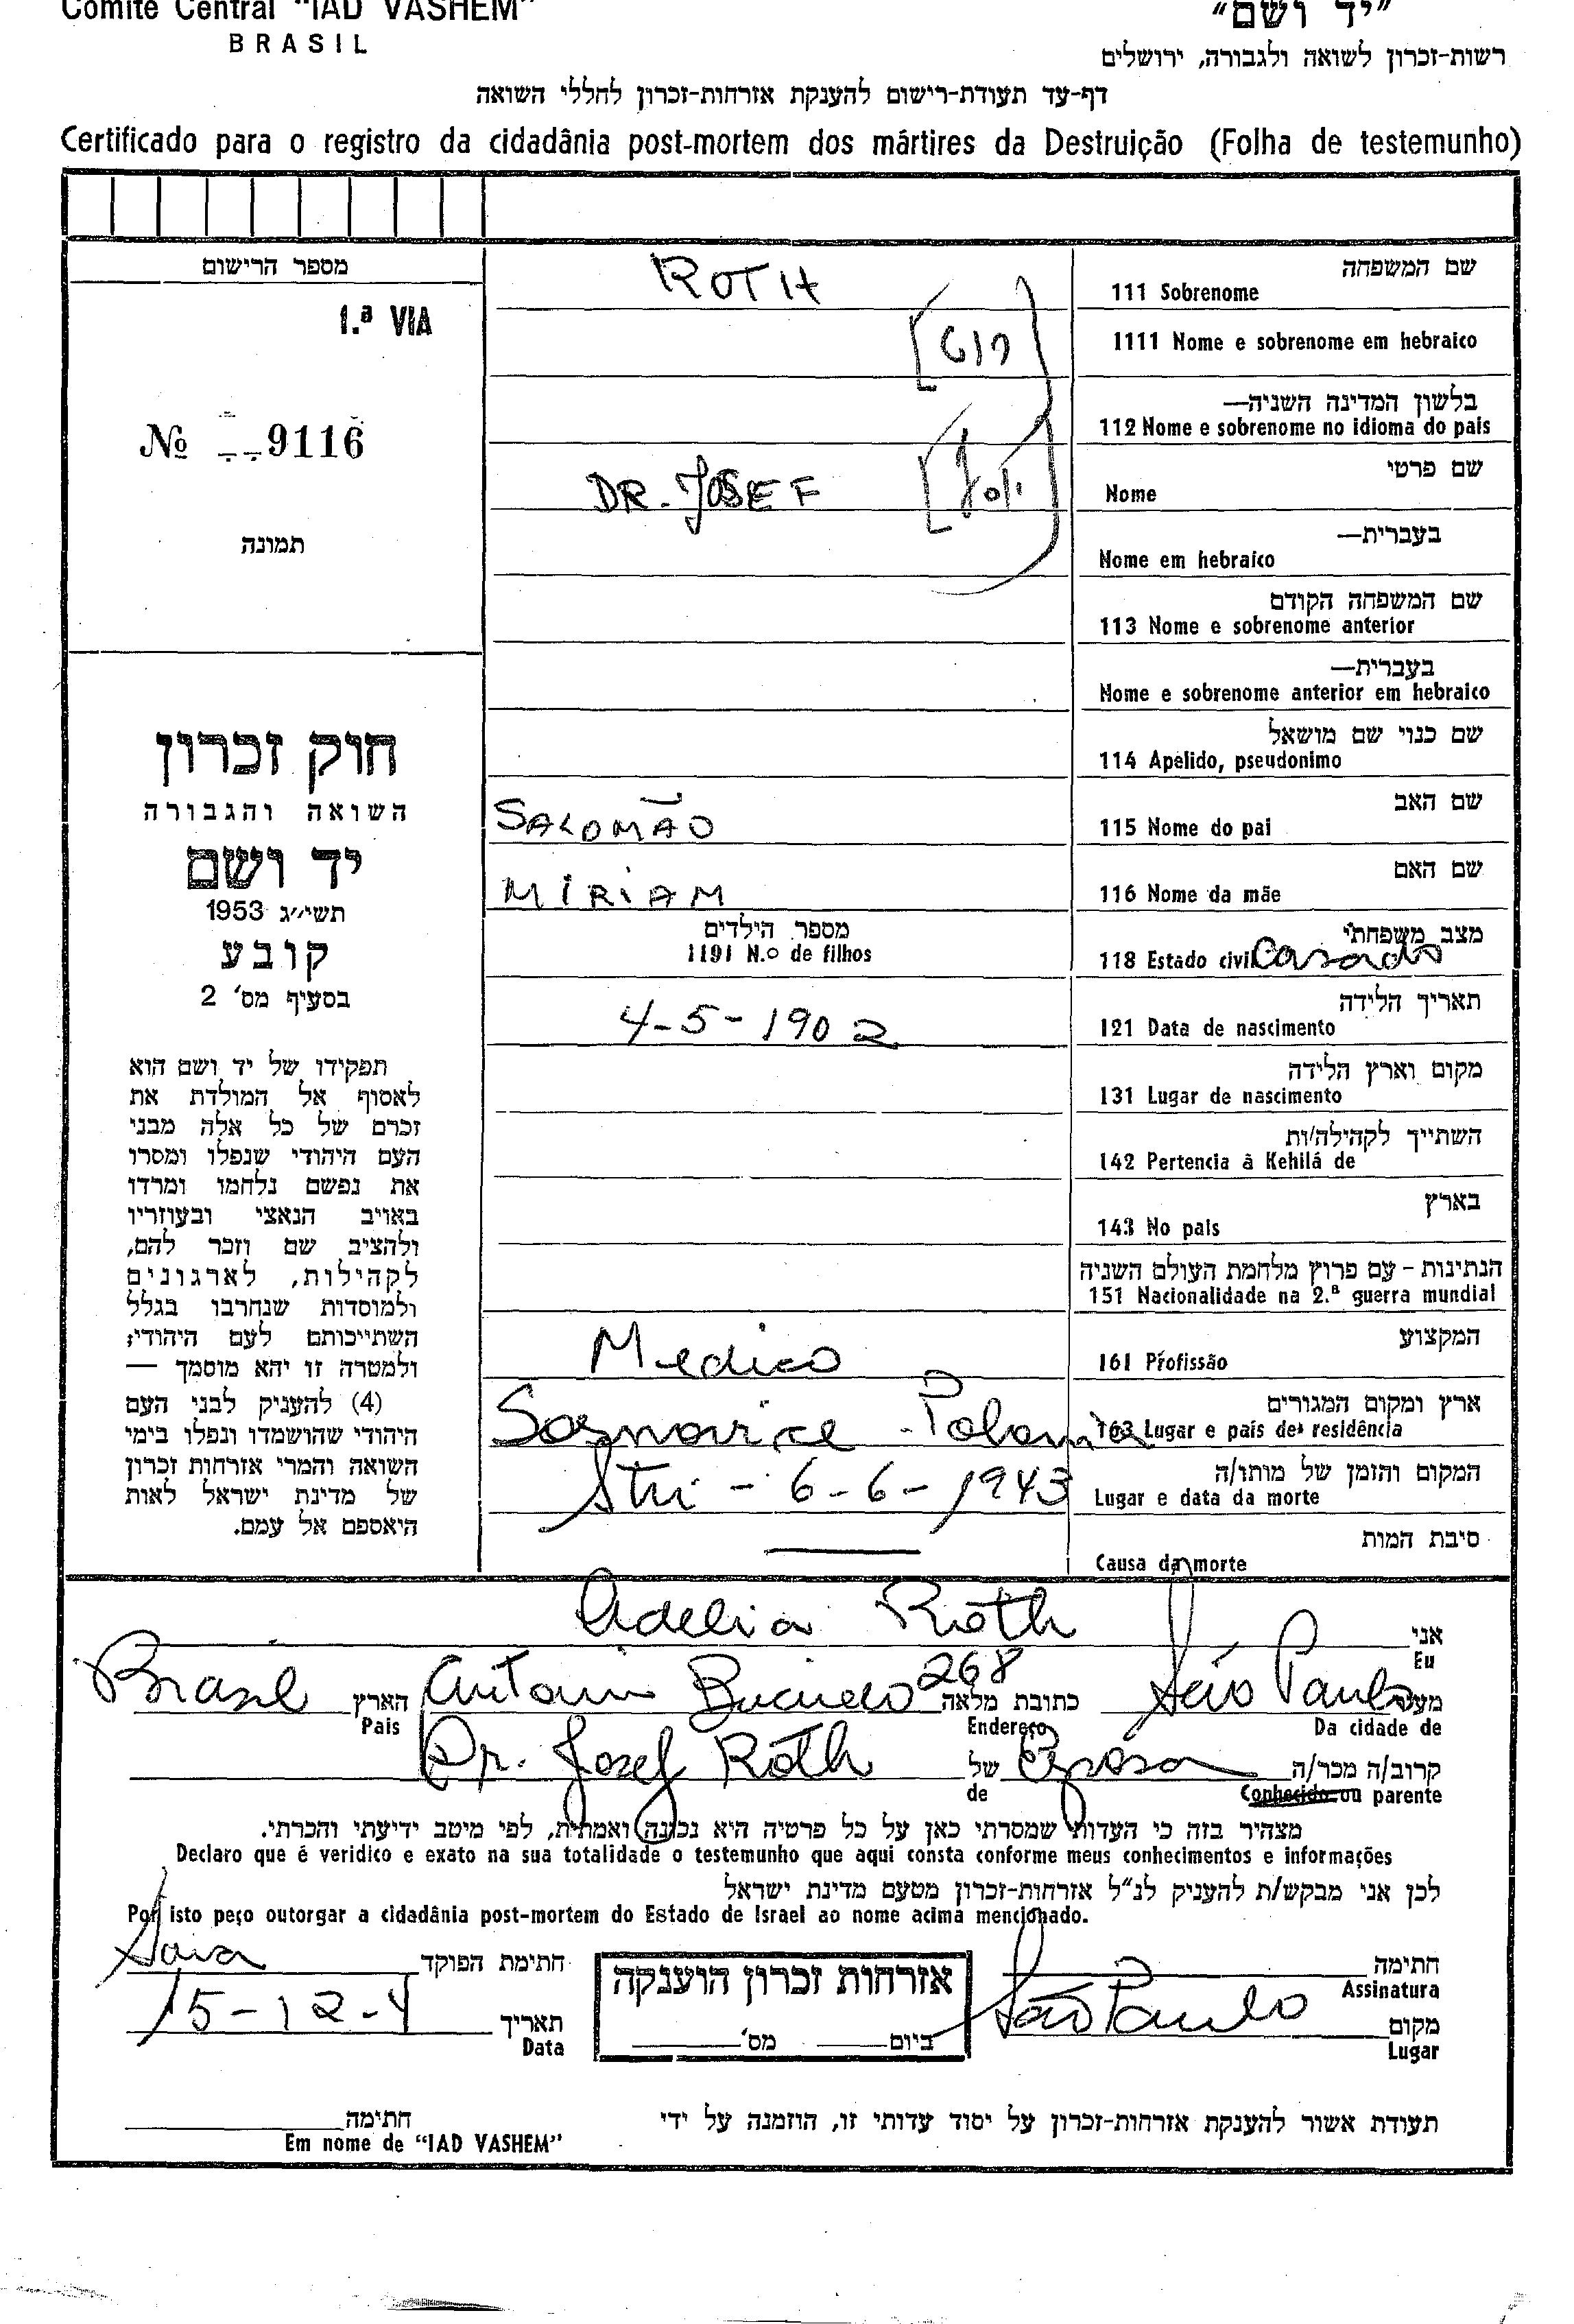 Comité Central "IAD VASHEM"
BRASIL
"יד ושם"
רשות-זכרון לשואה ולגבורה, ירושלים
דף-עד תעודת-רישום להענקת אזרחות-זכרון לחללי השואה
Certificado para o registro da cidadânia post-mortem dos mártires da Destruição (Folha de testemunho)
מספר הרישום
1.ª VIA
№ 9116
תמונה
חוק זכרון
השואה והגבורה
יד ושם
תשי"ג 1953
קובע
בסעיף מס' 2
תפקידו של יד ושם הוא
לאסוף אל המולדת את
זכרם של כל אלה מבני
העם היהודי שנפלו ומסרו
את נפשם נלחמו ומרדו
באויב הנאצי ובעוזריו
ולהציב שם וזכר להם,
לקהילות, לארגונים
ולמוסדות שנחרבו בגלל
השתייכותם לעם היהודי;
ולמטרה זו יהא מוסמך —
(4) להעניק לבני העם
היהודי שהושמדו ונפלו בימי
השואה והמרי אזרחות זכרון
של מדינת ישראל לאות
היאספם אל עמם.
שם המשפחה
111 Sobrenome ROTH
1111 Nome e sobrenome em hebraico [רוט]
בלשון המדינה השניה—
112 Nome e sobrenome no idioma do pais
שם פרטי
Nome DR. JOSEF [יוסף]
בעברית—
Nome em hebraico
שם המשפחה הקודם
113 Nome e sobrenome anterior
בעברית—
Nome e sobrenome anterior em hebraico
שם כנוי שם מושאל
114 Apelido, pseudonimo
שם האב
115 Nome do pai SALOMÃO
שם האם
116 Nome da mãe MIRIAM
מצב משפחתי
118 Estado civil Casado
מספר הילדים
1191 N.º de filhos
תאריך הלידה
121 Data de nascimento 4-5-1902
מקום וארץ הלידה
131 Lugar de nascimento
השתייך לקהילה/ות
142 Pertencia à Kehilá de
בארץ
143 No pais
הנתינות - עם פרוץ מלחמת העולם השניה
151 Nacionalidade na 2.ª guerra mundial
המקצוע
161 Profissão Medico
ארץ ומקום המגורים
163 Lugar e país de residência Sosnovice - Polonia
המקום והזמן של מותו/ה
Lugar e data da morte Stri - 6-6-1943
סיבת המות
Causa da morte —
אני
Eu Adelia Roth
מעיר São Paulo כתובת מלאה 268 הארץ Brasil
Da cidade de Endereço Pais
קרוב/ה מכר/ה Esposa של Dr. Josef Roth
Conhecido ou parente de
מצהיר בזה כי העדות שמסרתי כאן על כל פרטיה היא נכונה ואמתית, לפי מיטב ידיעתי והכרתי.
Declaro que é veridico e exato na sua totalidade o testemunho que aqui consta conforme meus conhecimentos e informações
לכן אני מבקש/ת להעניק לנ"ל אזרחות-זכרון מטעם מדינת ישראל
Por isto peço outorgar a cidadânia post-mortem do Estado de Israel ao nome acima mencionado.
חתימה
Assinatura
חתימת הפוקד
אזרחות זכרון הוענקה
ביום מס'
מקום São Paulo
Lugar
תאריך 15-12-
Data
תעודת אשור להענקת אזרחות-זכרון על יסוד עדותי זו, הוזמנה על ידי
חתימה
Em nome de "IAD VASHEM"